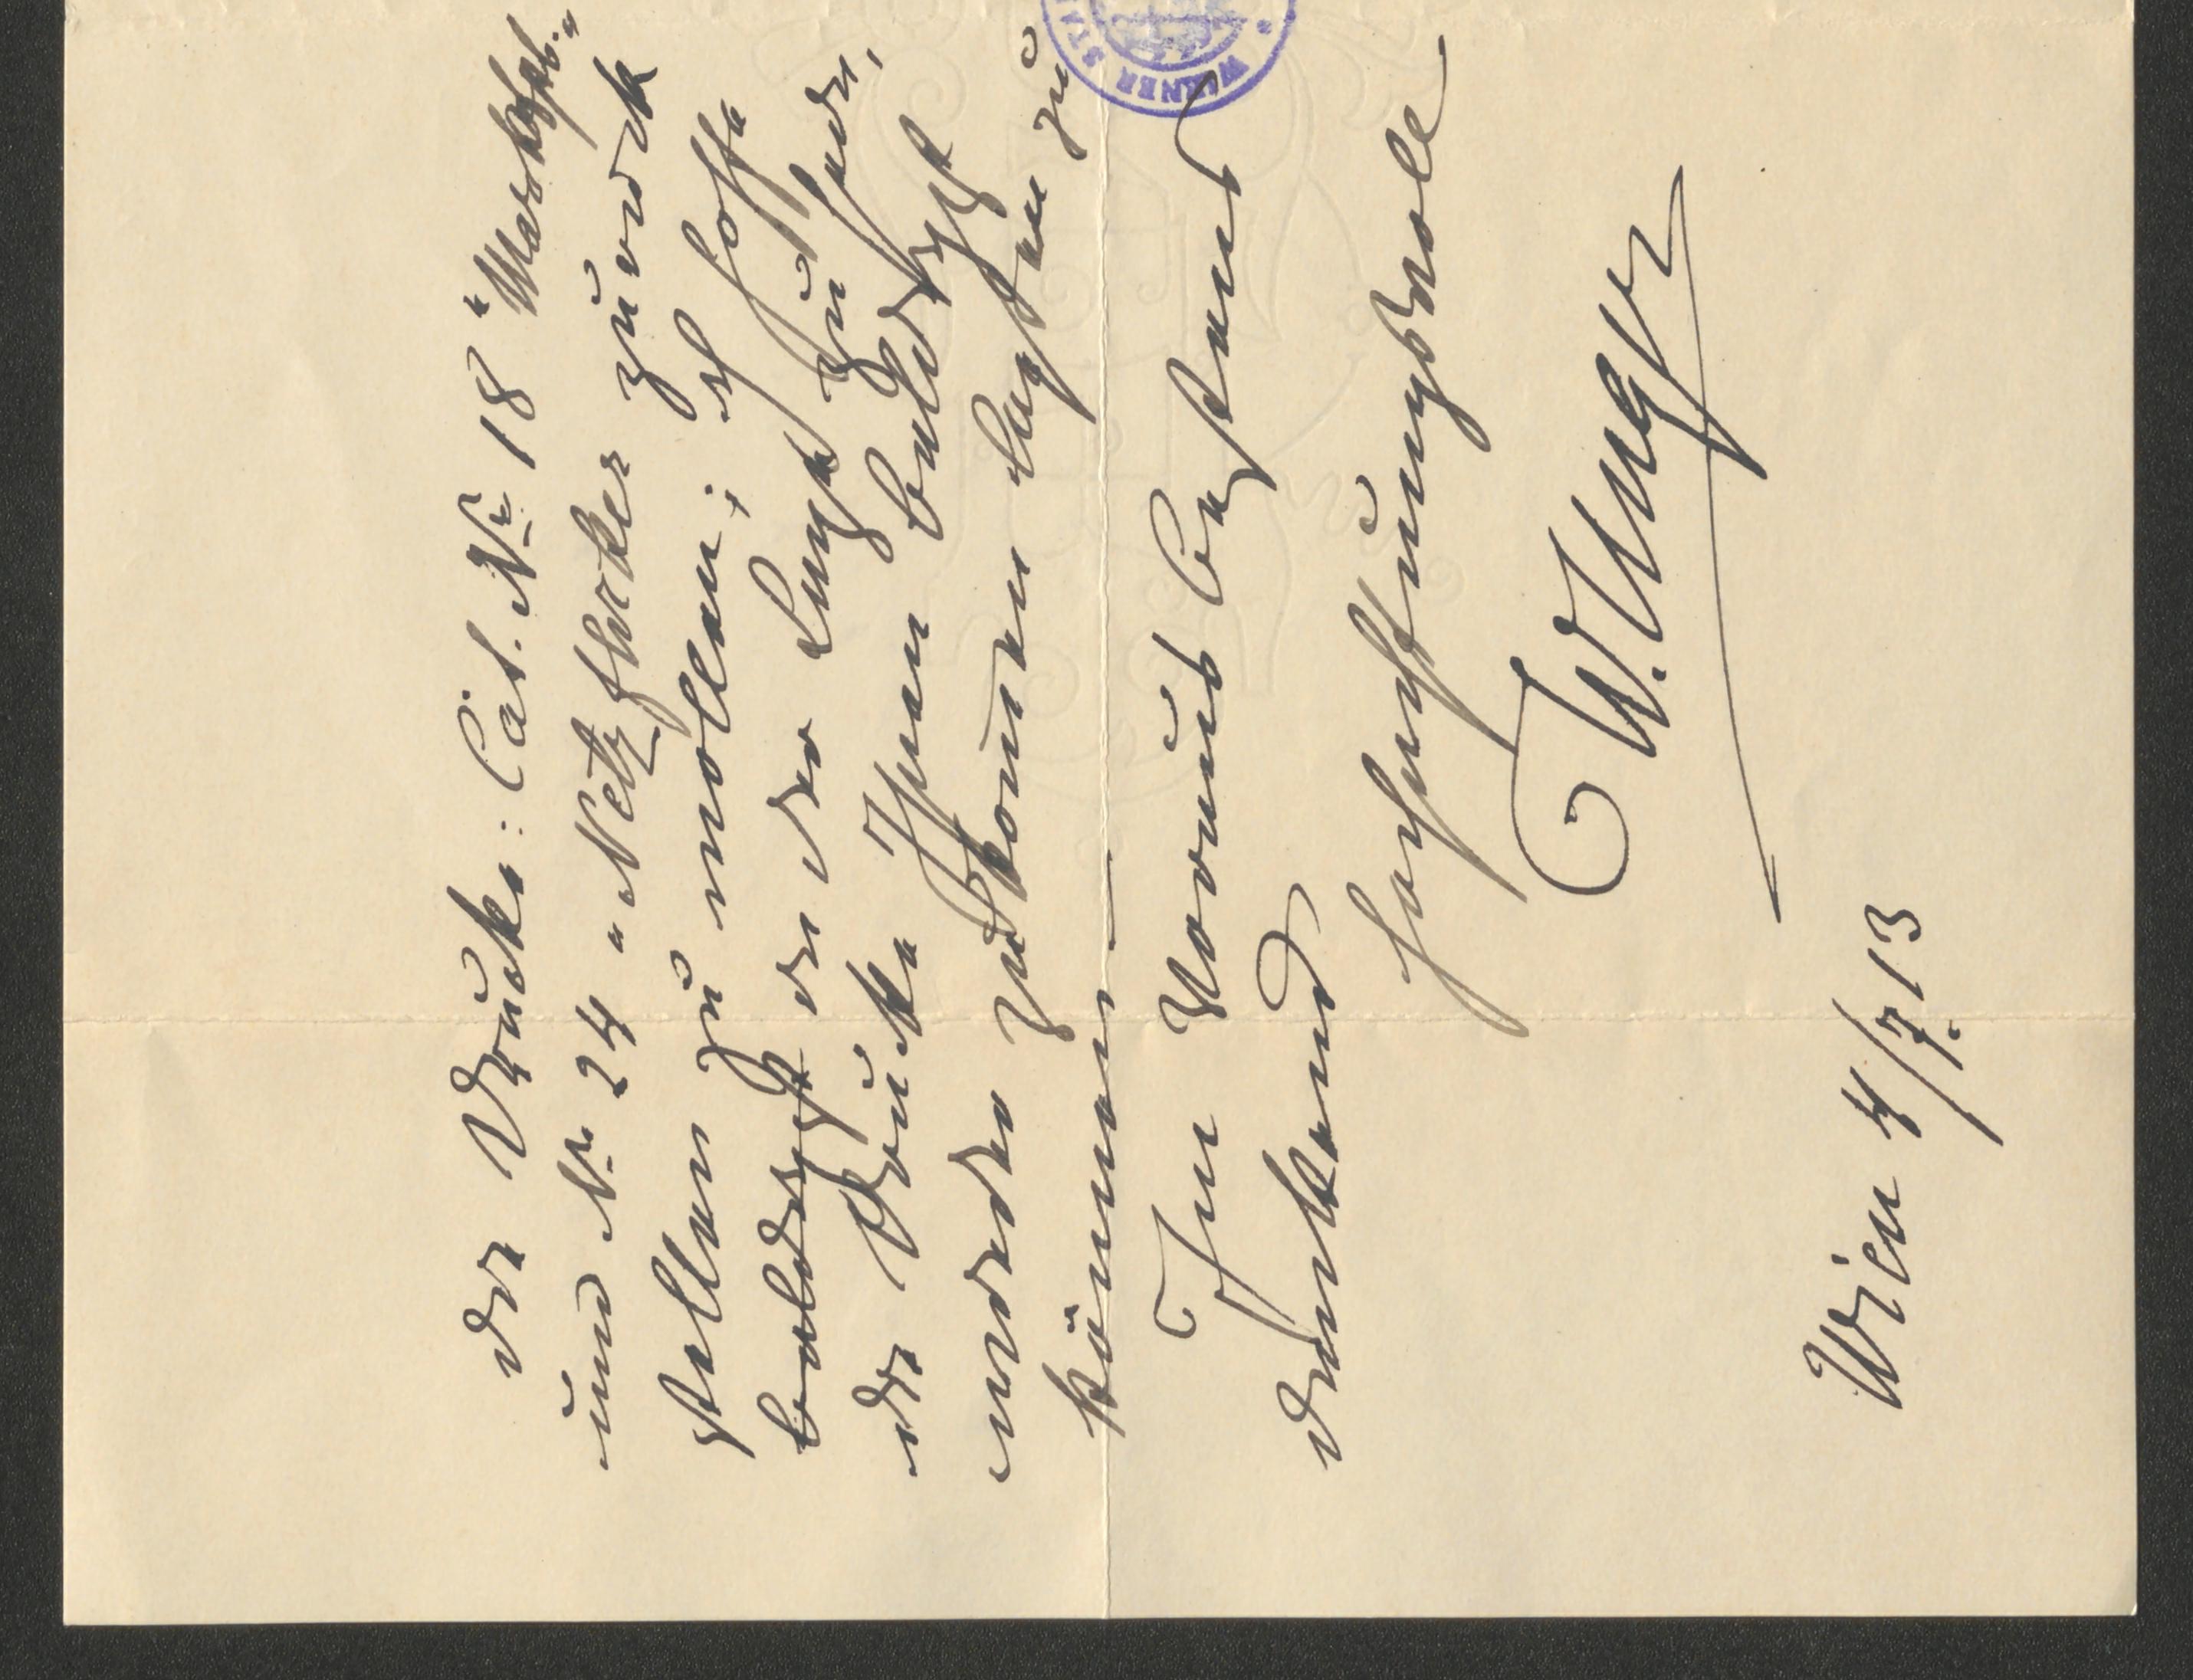 der Drucke: Cat. Nr 18 "Markgfslb."
und Nr 24 "Netzflicker zurück
stellen zu wollen; ich hoffe
baldigst in der Lage zu sein,
die Drucke Ihnen baldigst
wieder zukommen lassen zu
können —
Im Voraus bestens
dankend
hochachtungsvoll
W. Unger
Wien 4/7. 13
WIENER